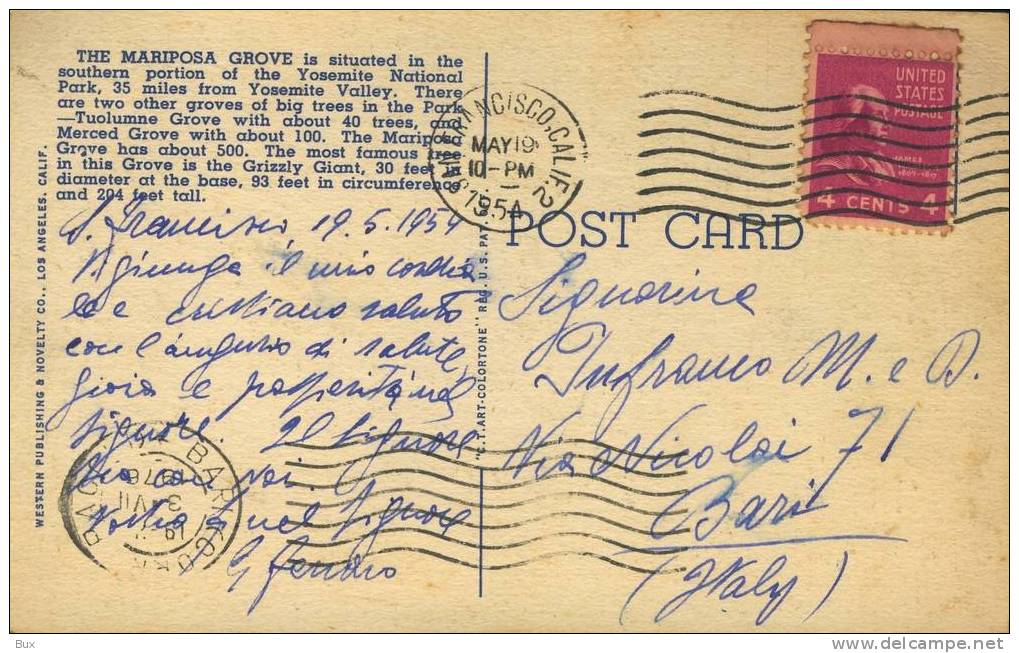 THE MARIPOSA GROVE is situated in the
southern portion of the Yosemite National
Park, 35 miles from Yosemite Valley. There
are two other groves of big trees in the Park
—Tuolumne Grove with about 40 trees, and
Merced Grove with about 100. The Mariposa
Grove has about 500. The most famous tree
in this Grove is the Grizzly Giant, 30 feet in
diameter at the base, 93 feet in circumference
and 204 feet tall.
S. Francisco 19.5.1954
il mio cordia
le e cristiano saluto
con l'augurio di salute,
gioia e prosperità nel
Signore. Il Signore
sia con voi.
nel Signore
WESTERN PUBLISHING & NOVELTY CO., LOS ANGELES, CALIF.
"C.T. ART-COLORTONE" REG. U.S. PAT.
SAN FRANCISCO, CALIF. 2
MAY 19
10 - PM
1954
UNITED
STATES
POSTAGE
JAMES
4 CENTS 4
POST CARD
Signorine
Infranco M. e D.
Via Nicolai 71
Bari
(Italy)
BARI
Bux
www.delcampe.net